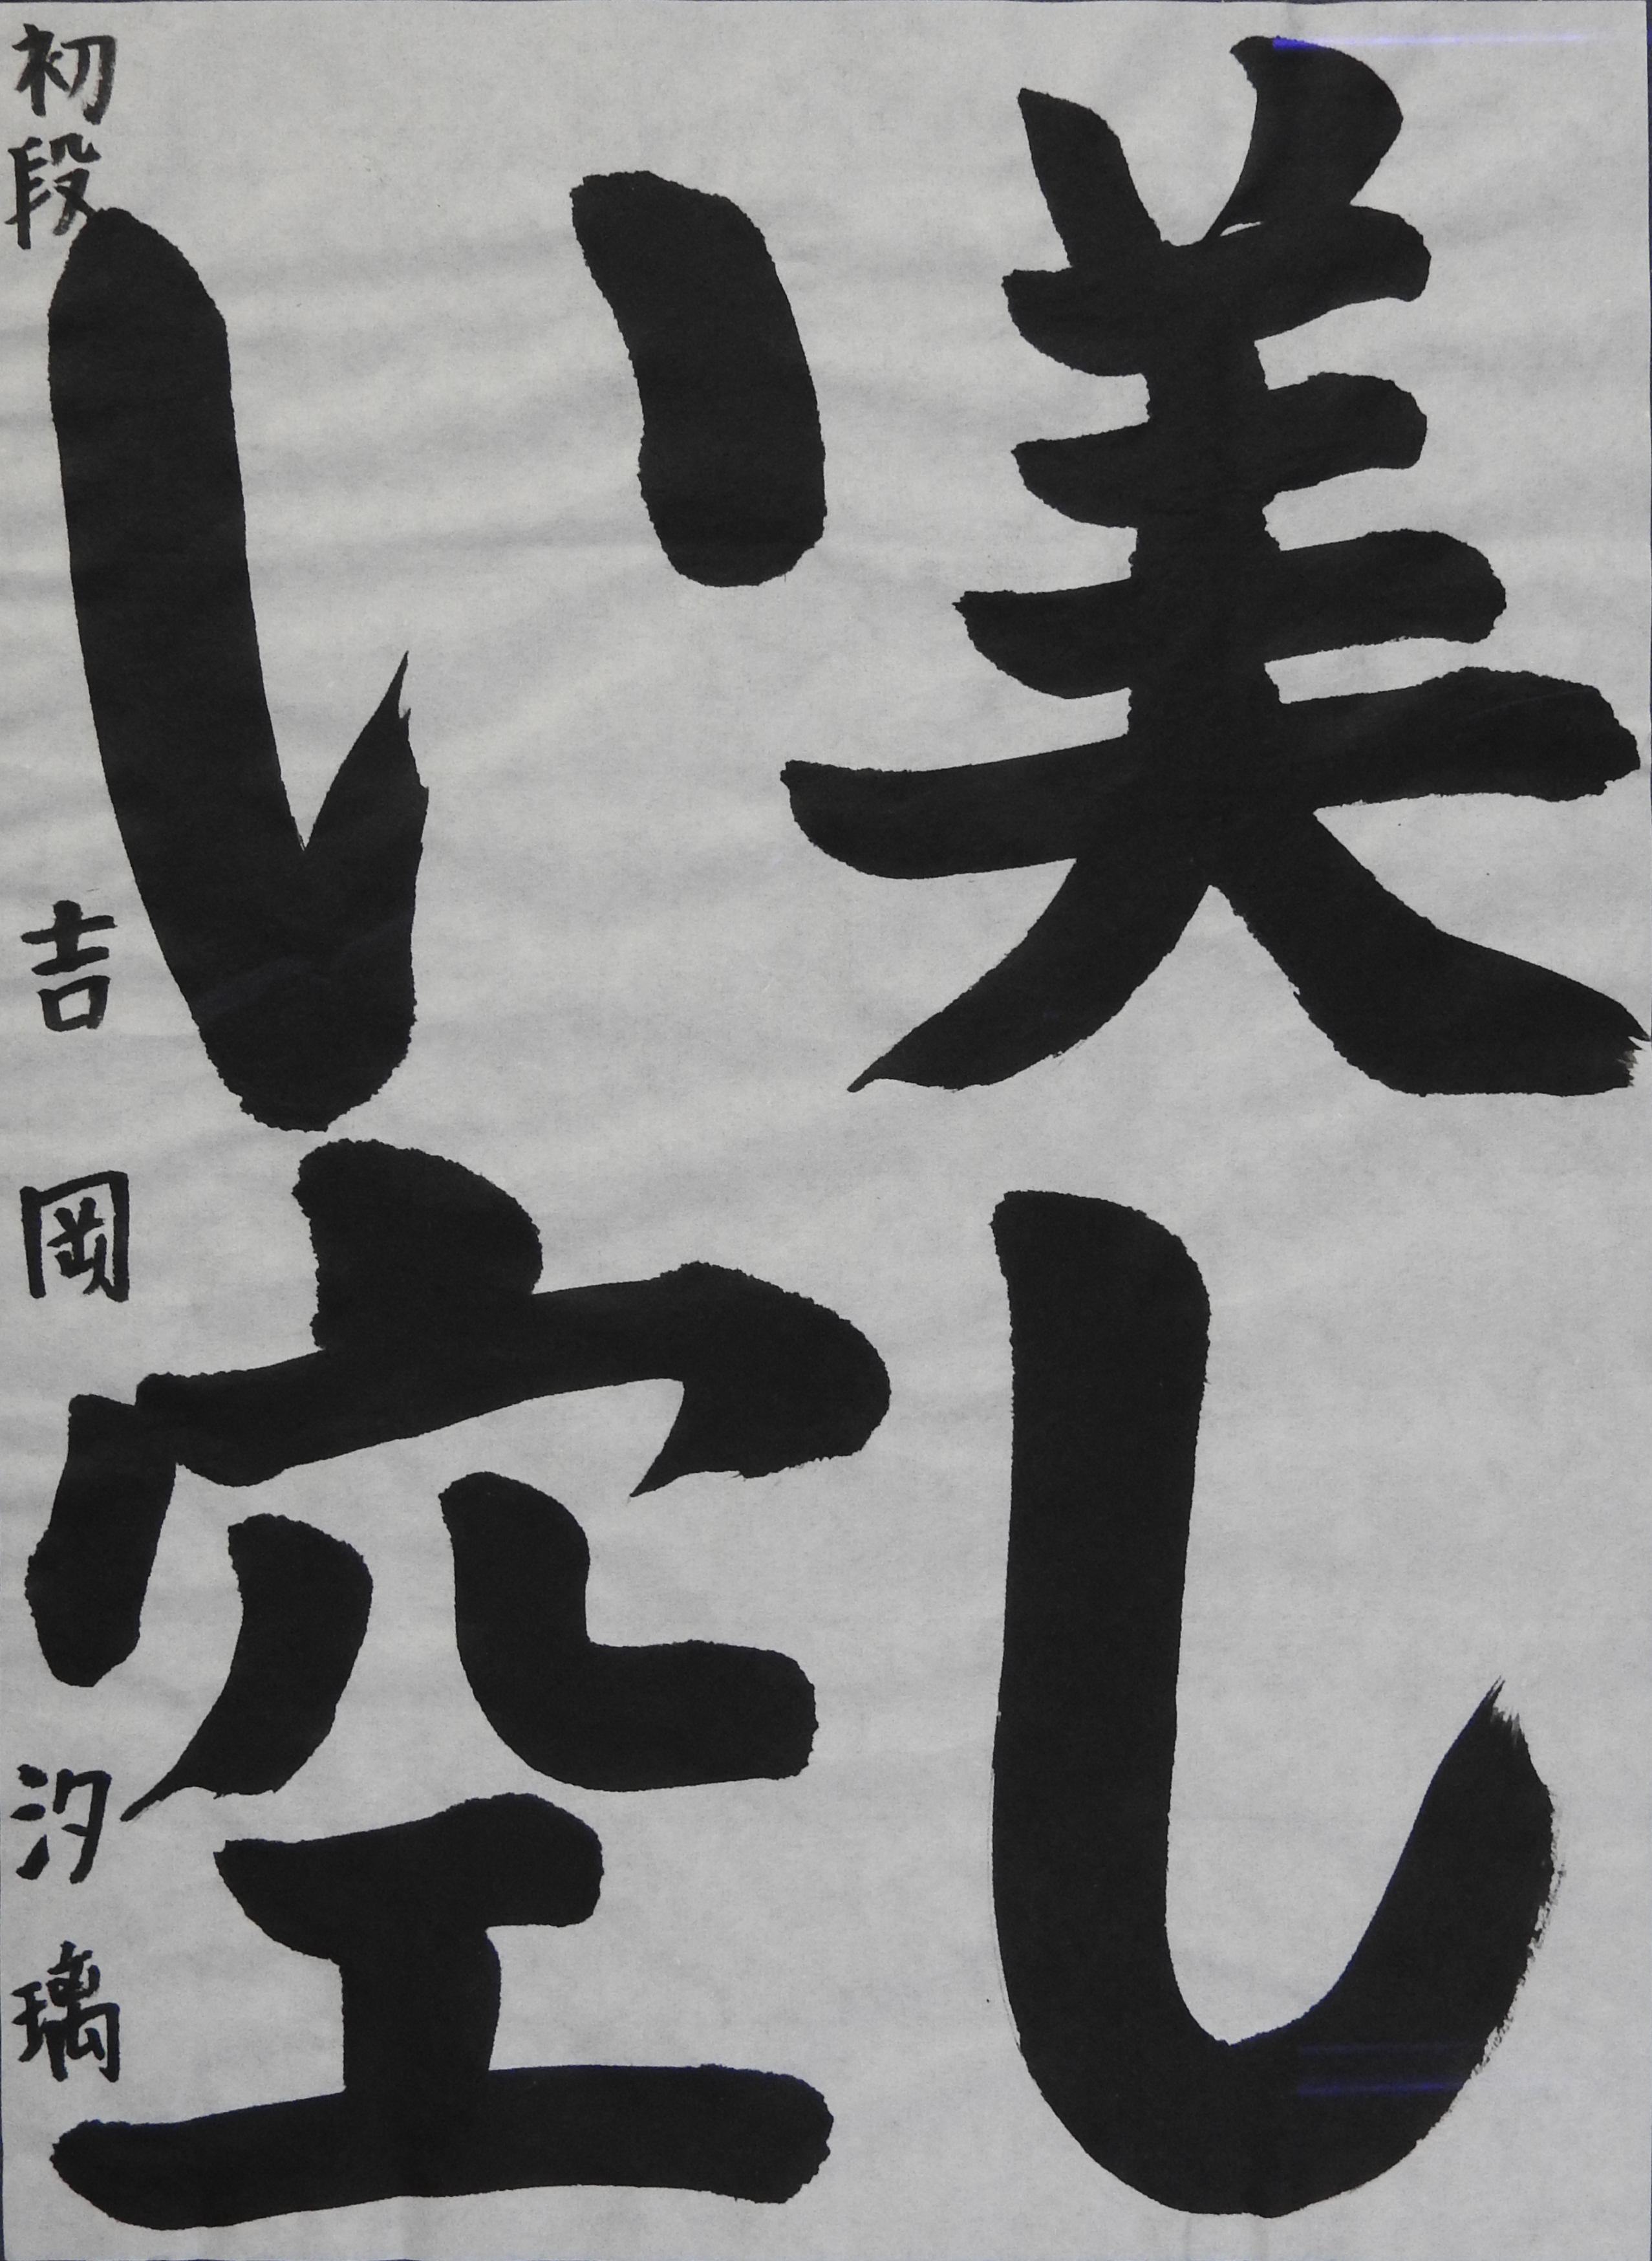 美し
い空
初段 吉岡汐璃